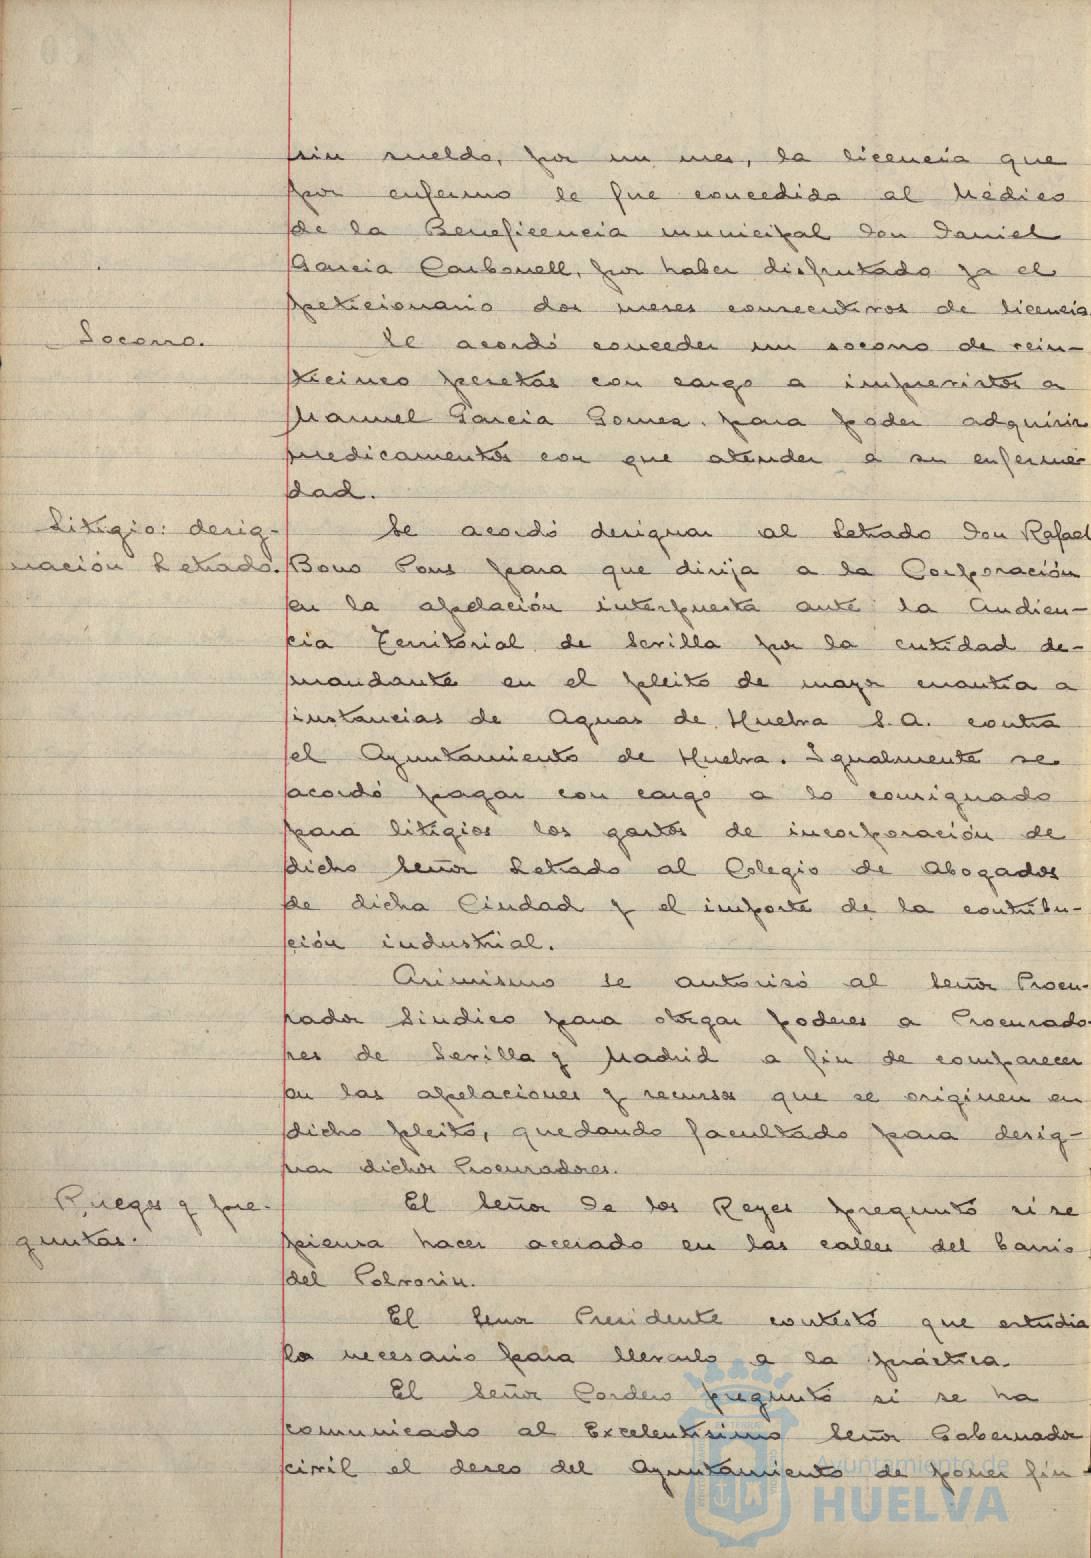 sin sueldo, por un mes, la licencia que
por enfermo le fue concedida al Médico
de la Beneficencia municipal Don Daniel
Garcia Carbonell, por haber disfrutado ya el
peticionario dos meses consecutivos de licencia
Socorro.
Se acordó conceder un socorro de vein-
ticinco pesetas con cargo a imprevistos a
Manuel Garcia Gomez. para poder adquirir
medicamentos con que atender a su enferme-
dad.
Litigio: desig-
nación Letrado.
Se acordó designar al Letrado Don Rafael
Bono Pons para que dirija a la Corporación
en la apelación interpuesta ante la Audien-
cia Territorial de Sevilla por la entidad de-
mandante en el pleito de mayor cuantía a
instancias de Aguas de Huelva S.A. contra
el Ayuntamiento de Huelva. Igualmente se
acordó pagar con cargo a lo consignado
para litigios los gastos de incorporación de
dicho Señor Letrado al Colegio de Abogados
de dicha Ciudad y el importe de la contribu-
ción industrial.
Asimismo se autorizó al Señor Procu-
rador Sindico para otorgar poderes a Procurado-
res de Sevilla y Madrid a fin de comparecer
en las apelaciones y recursos que se originen en
dicho pleito, quedando facultado para desig-
nar dichos Procuradores.
Ruegos y pre-
guntas.
El Señor De los Reyes preguntó si se
piensa hacer acerado en las calles del barrio
del Polvorin.
El Señor Presidente contestó que estudia
lo necesario para llevarlo a la práctica.
El Señor Cordero preguntó si se ha
comunicado al Excelentísimo Señor Gobernador
civil el deseo del Ayuntamiento de poner fin
Ayuntamiento de
HUELVA